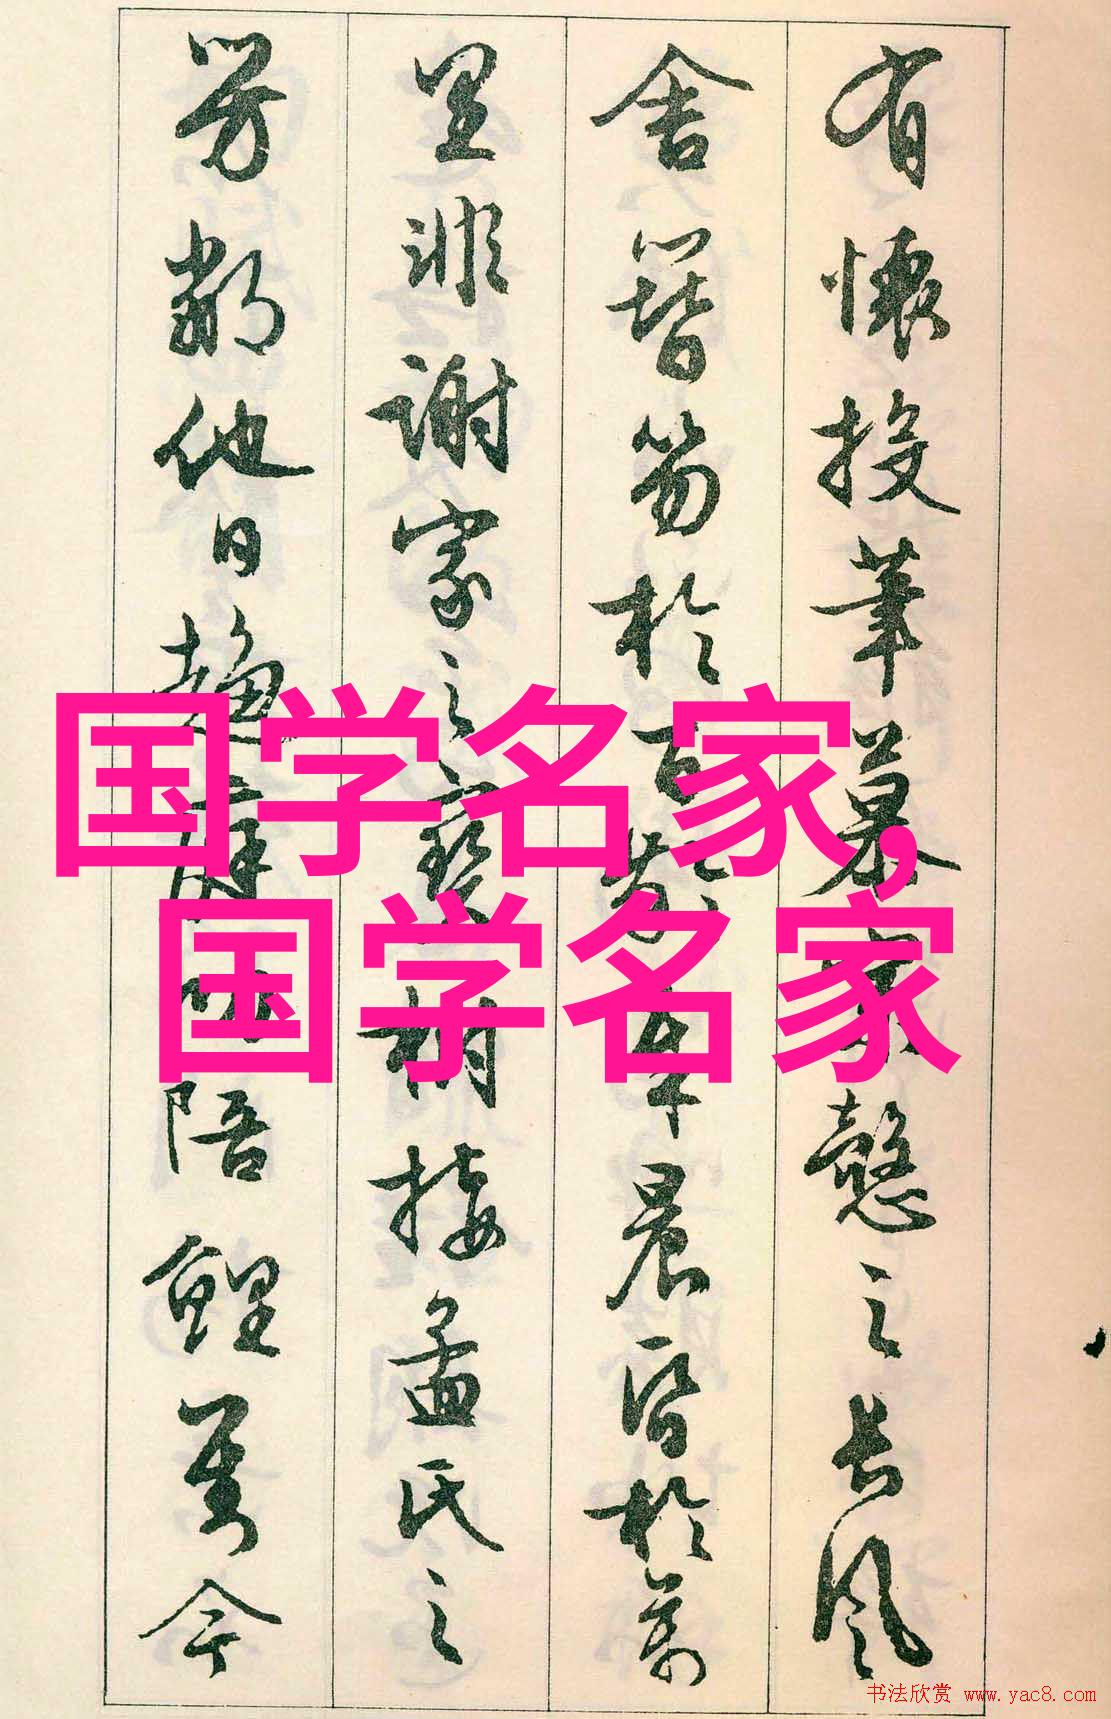 有懷投筆慕宗慤之長風
舍簪笏於百齡奉晨昏於萬
里非謝家之寶樹接孟氏之
芳鄰他日趨庭叨陪鯉對今
国学名家,
国学名家
书法欣赏 www.yac8.com